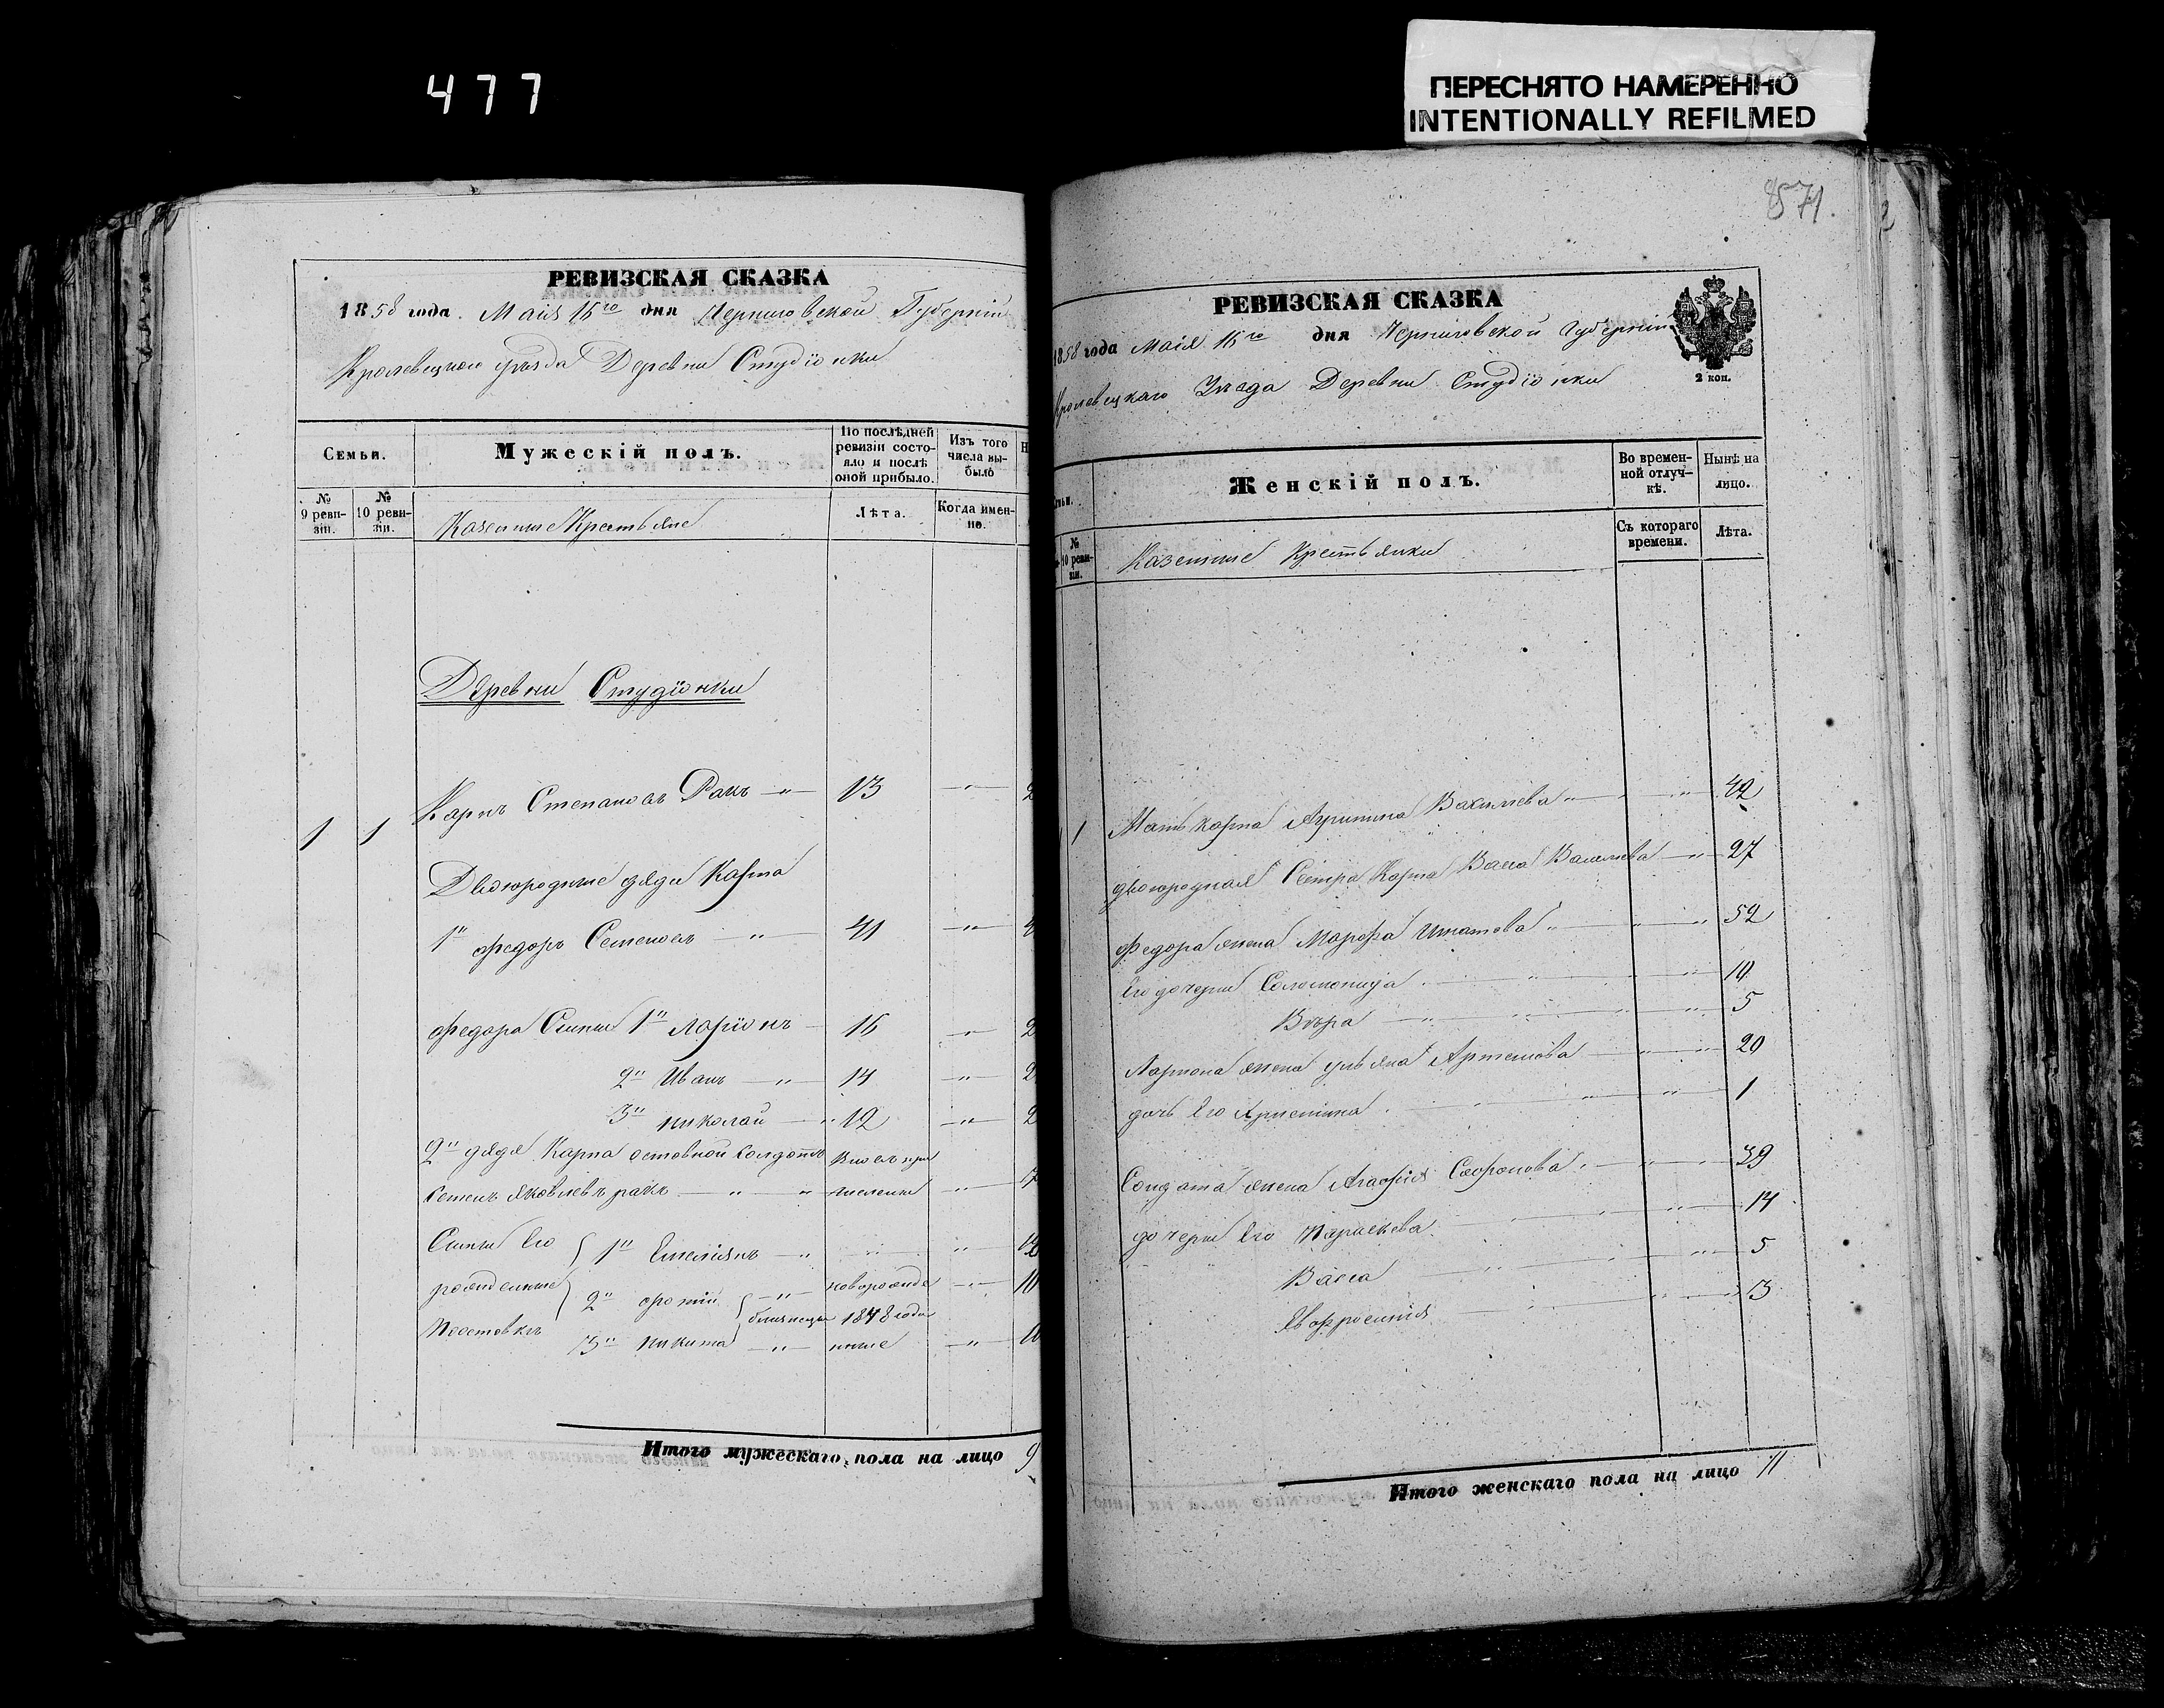 477
ПЕРЕСНЯТО НАМЕРЕННО
INTENTIONALLY REFILMED
РЕВИЗСКАЯ СКАЗКА
1858 года Маія 15го дня Черниговской Губерніи
Кролевецкого уѣзда Деревни Студіонки
Семьи.
Мужескій полъ.
По послѣдней ревизіи состояло и послѣ оной прибыло.
Изъ того числа выбыло
№ 9 ревизіи.
№ 10 ревизіи.
Казенные Крестьяне
Лѣта.
Когда именно.
Деревни Студіонки
1 1 Карпъ Степановъ Ракъ — " — 13 — " —
Двоюродные дяди Карпа
1й Федоръ Семеновъ " — 41 — " —
Федора Сыны 1й Ларіонъ — 15 — " —
2й Иванъ — " — 14 — " —
3й Николай — " 12 — " —
2й дядя Карпа отставной Солдатъ
Семенъ Яковлевъ Ракъ — " — " —
Сыны Его 1й Емеліянъ — "
рожденные 2й Фотій — " — новорожде — " — 10
близнецы 1848 года
3й Никита — " — нные — " — 10
Итого мужескаго пола на лицо 9
571.
РЕВИЗСКАЯ СКАЗКА
1858 года Маія 15го дня Черниговской Губерніи
Кролевецкаго Уѣзда Деревни Студіонки
2 коп.
Женскій полъ.
Во временной отлучкѣ.
Нынѣ на лицо.
№ 10 ревизіи.
Казенные Крестьянки
Съ котораго времени.
Лѣта.
1 Мать Карпа Агрипина Васильева " — " — 42
двоюродная Сестра Карпа Васса Васильева — " — 27
Федора жена Марфа Игнатова " — " — " 52
Его дочери Соломонида — " — 10
Вѣра — " — 5
Лариона жена Ульяна Артемова — " — 20
дочь Его Аксинина — " — 1
Солдата жена Агафія Сафронова — " — 39
дочери Его Параскева — " — 14
Васса — " — 5
Евфросинія — " — 3
Итого женскаго пола на лицо 11